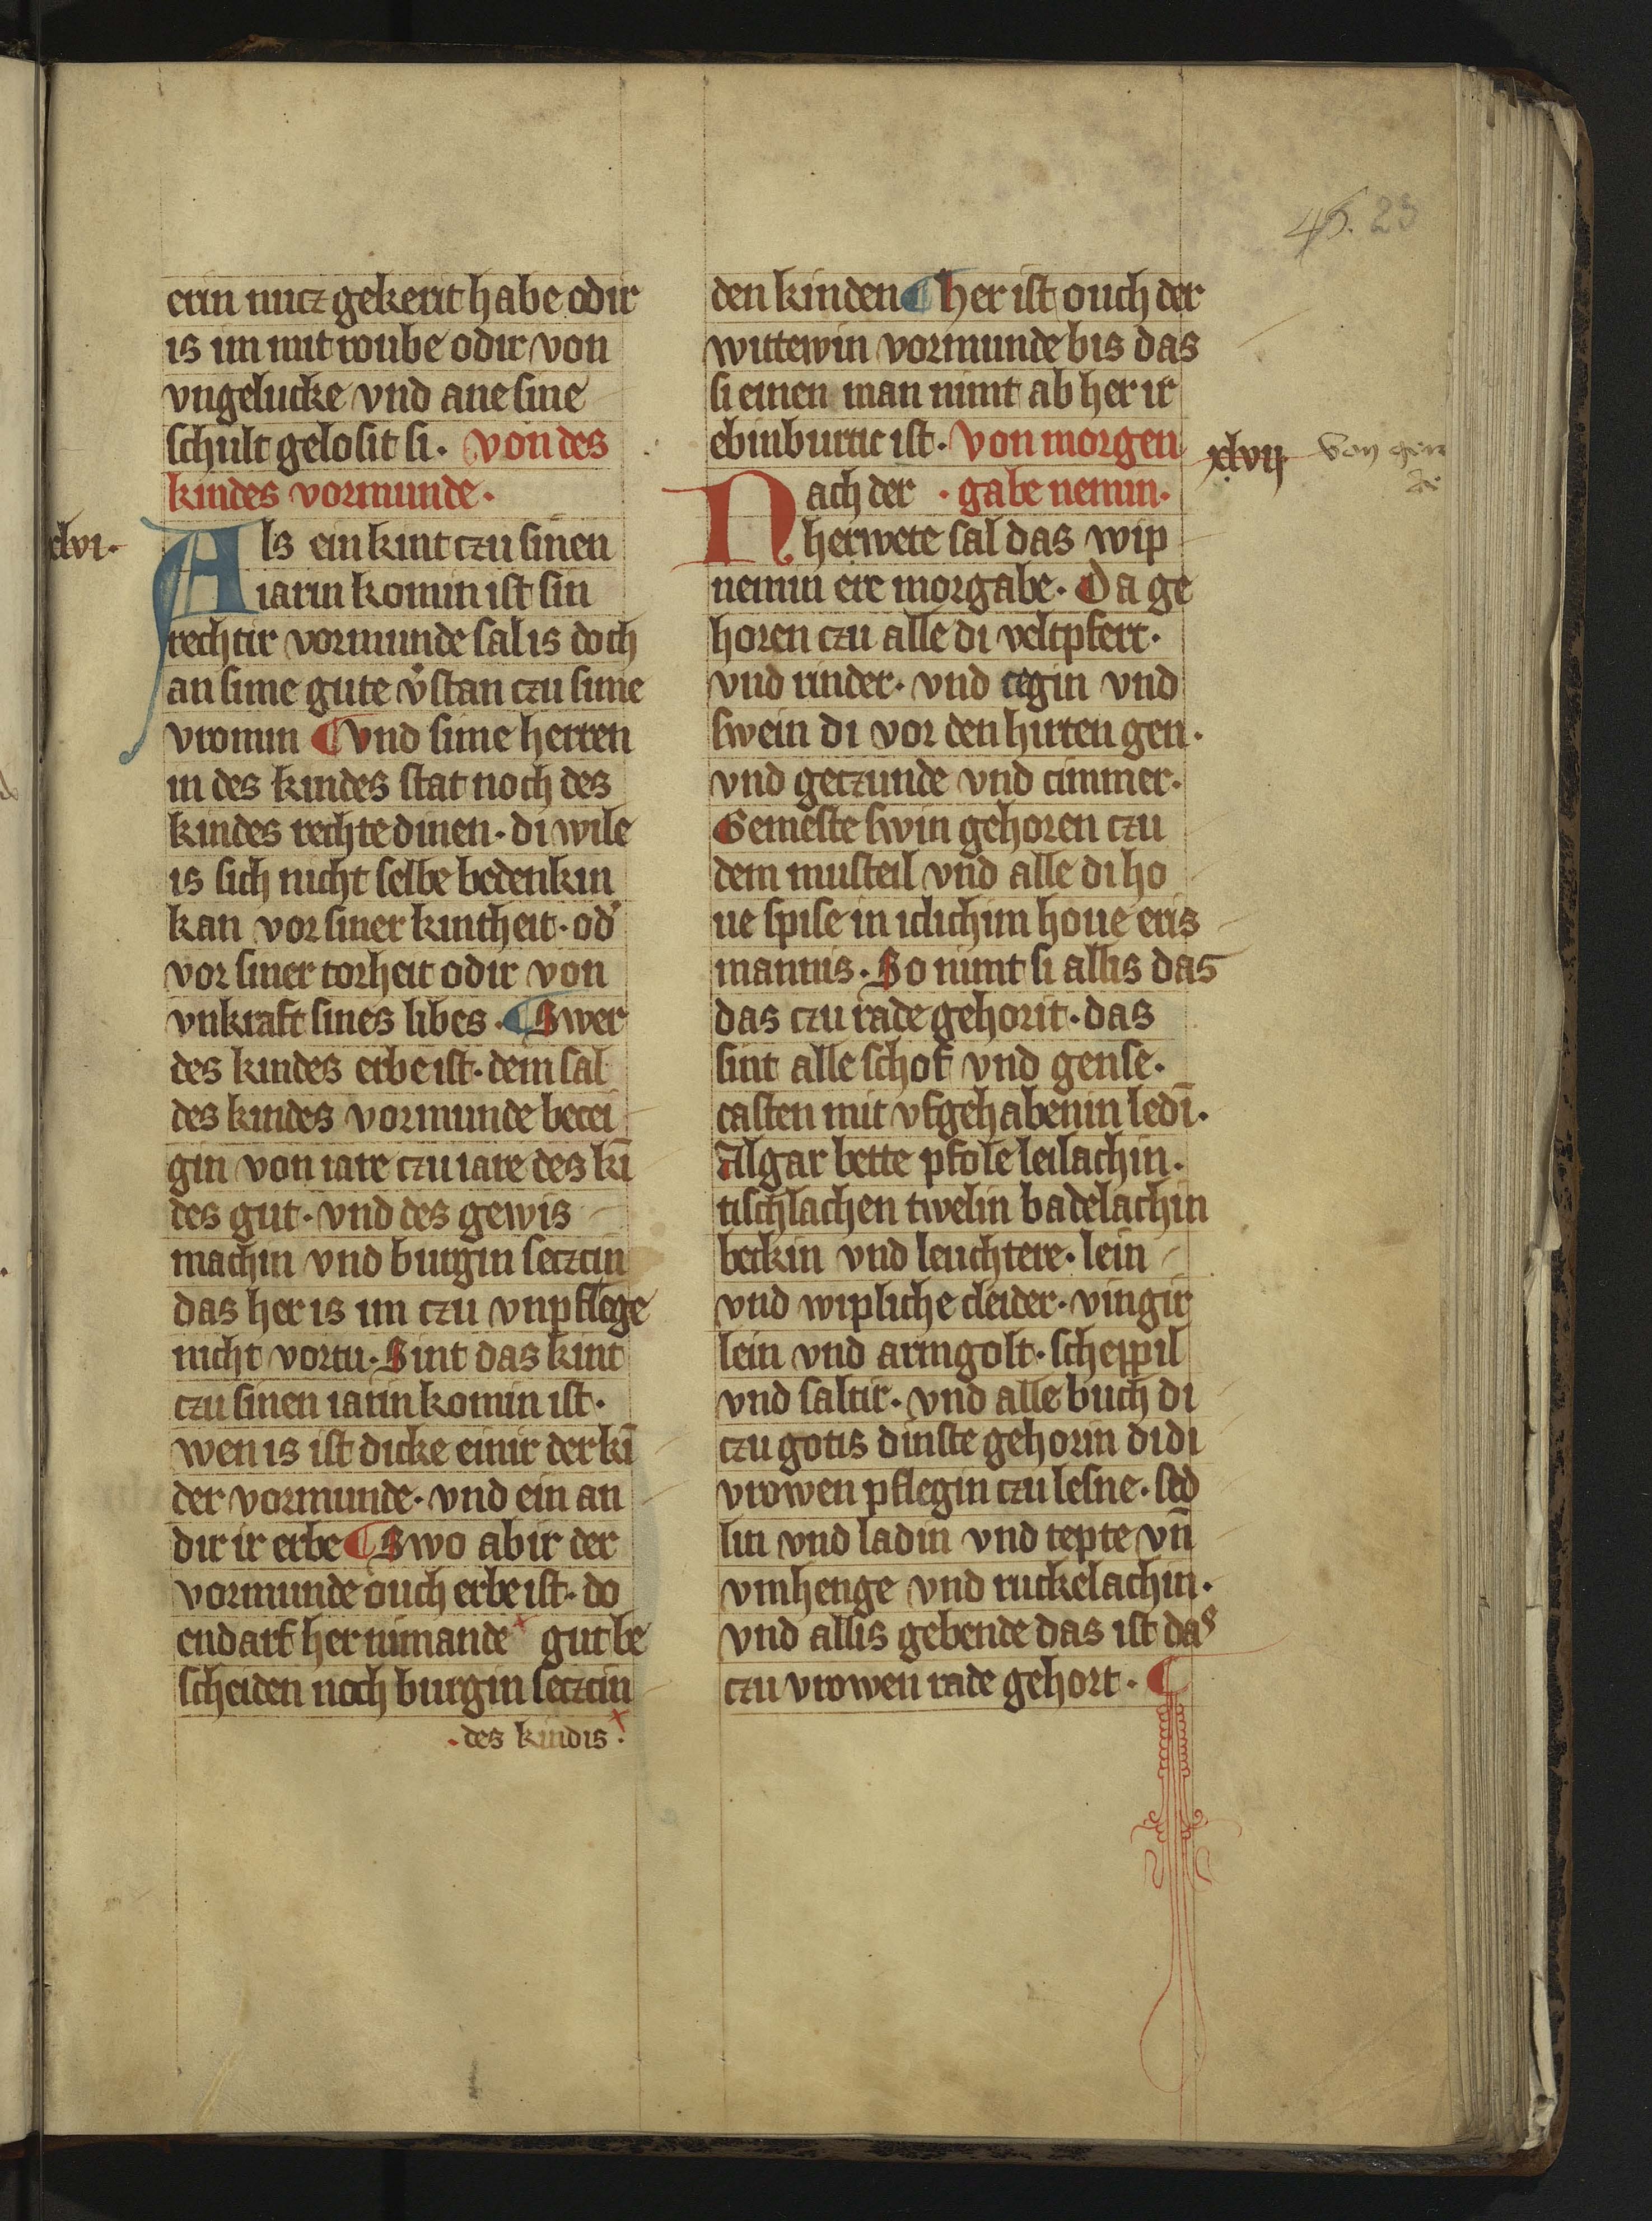 45. 23
erin nucz gekerit habe odir
is im mit roube odir von
vngelucke vnd ane sine
schult gelosit si. von des
kindes vormunde.
xlvi.
Als ein kint czu sinen
iarin komin ist sin
rechtir vormunde sal is doch
an sime gute v̾stan czu sime
vromin ¶ vnd sime herren
in des kindes stat noch des
kindes rechte dinen. di wile
is sich nicht selbe bedenkin
kan vor siner kintheit. od̾
vor siner torheit odir von
vnkraft sines libes. ¶ Swer
des kindes erbe ist. dem sal
des kindes vormunde becei
gin von iare czu iare des kī
des gut. vnd des gewis
machin vnd burgin seczcin
das her is im czu vnpflege
nicht vortu. Sint das kint
czu sinen iarin komin ist.
wen is ist dicke einir der kī
der vormunde. vnd ein an
dir ir erbe ¶ Swo abir der
vormunde ouch erbe ist. do
endarf her nimande x gut be
scheiden noch burgin seczcin
. des kindis x .
den kinden ¶ her ist ouch der
wittewin vormunde bis das
si einen man nimt ab her ir
ebinburtic ist. Von morgen
xlvij
Nach der . gabe nemin.
herwete sal das wip
nemin ere morgabe. Da ge
horen czu alle di veltpfert.
vnd rinder. vnd cegin vnd
swein di vor den hirten gen.
vnd geczunde vnd cimmer.
Gemeste swin gehoren czu
dem musteil vnd alle di ho
ue spise in iclichim houe eris
mannis. So nimt si allis das
das czu rade gehorit. das
sint alle schof vnd gense.
casten mit vfgehabenin ledī.
Algar bette pfole leilachin.
tischlachen twelin badelachin
beckin vnd leuchtere. lein
vnd wipliche cleider. vingir
lein vnd armgolt. scheppil
vnd saltir. vnd alle buch di
czu gotis dinste gehorin di di
vrowen pflegin czu lesne. sed
lin vnd ladin vnd tepte vn̄
vmhenge vnd ruckelachin.
vnd allis gebende das ist das
czu vrowen rade gehort. ¶